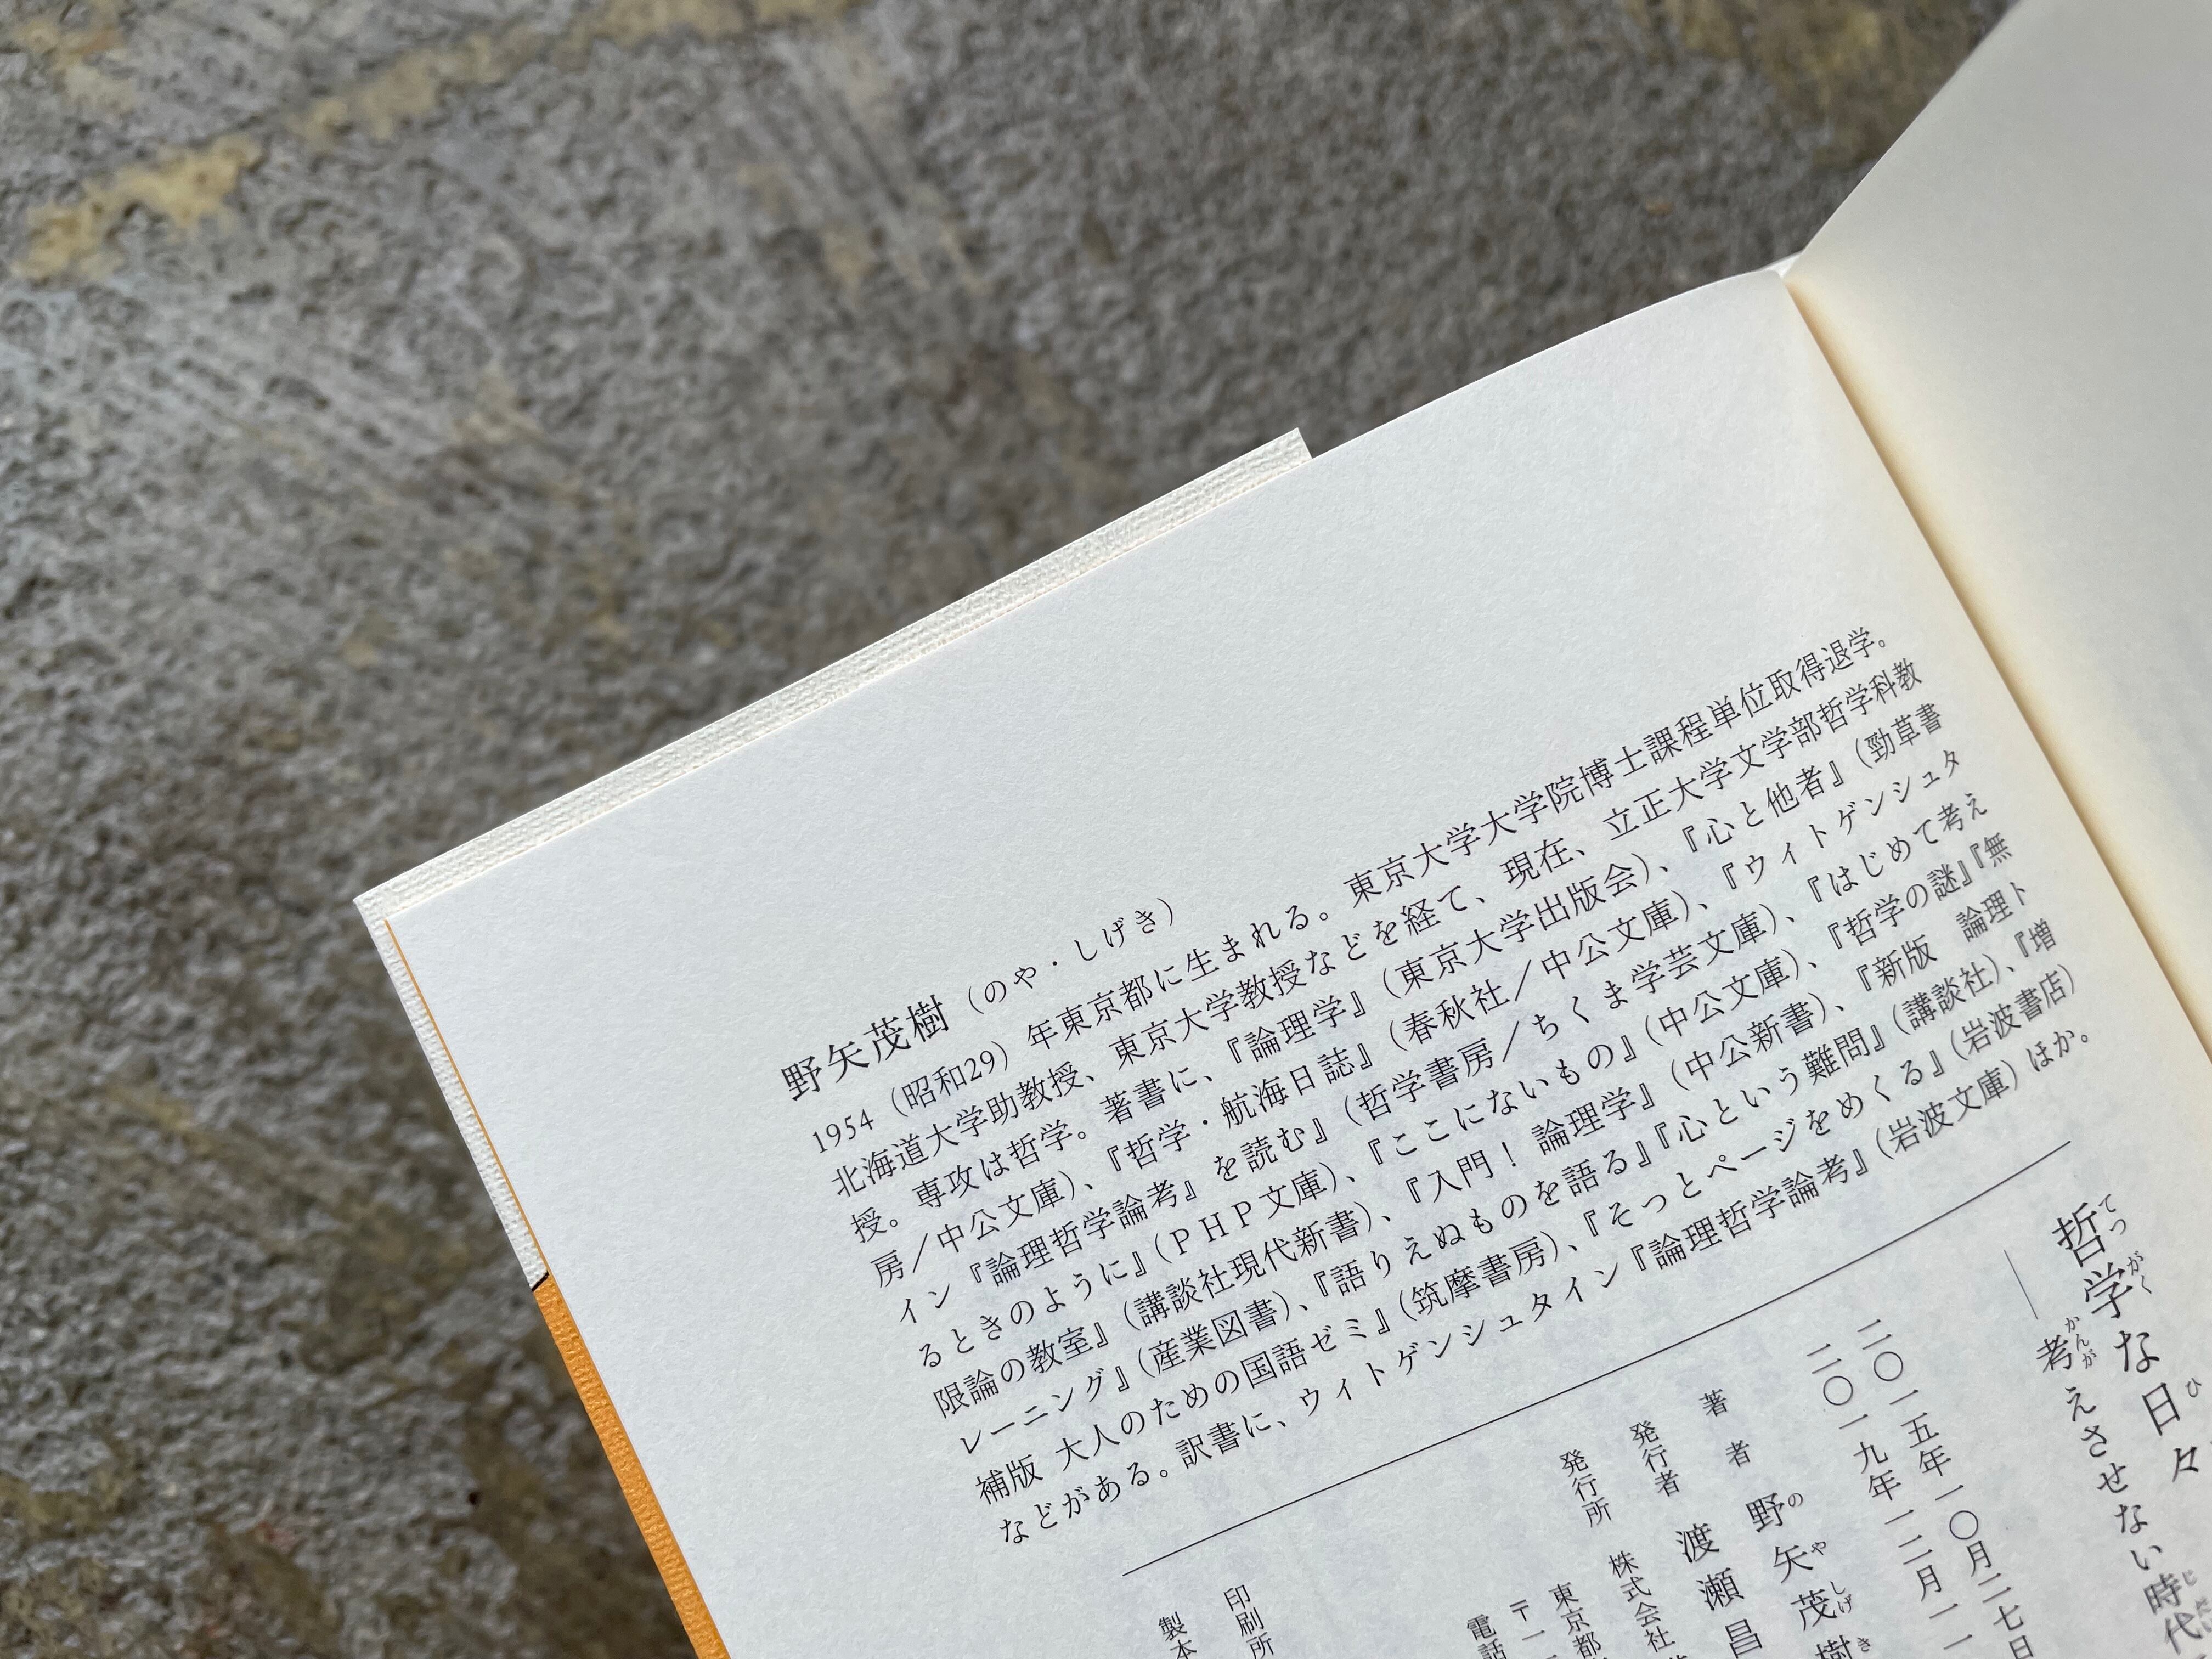 野矢茂樹（のや・しげき）
1954（昭和29）年東京都に生まれる。東京大学大学院博士課程単位取得退学。
北海道大学助教授、東京大学教授などを経て、現在、立正大学文学部哲学科教
授。専攻は哲学。著書に、『論理学』（東京大学出版会）、『心と他者』（勁草書
房／中公文庫）、『哲学・航海日誌』（春秋社／中公文庫）、『ウィトゲンシュタ
イン『論理哲学論考』を読む』（哲学書房／ちくま学芸文庫）、『はじめて考え
るときのように』（PHP文庫）、『ここにないもの』（中公文庫）、『哲学の謎』『無
限論の教室』（講談社現代新書）、『入門！ 論理学』（中公新書）、『新版 論理ト
レーニング』（産業図書）、『語りえぬものを語る』『心という難問』（講談社）、『増
補版 大人のための国語ゼミ』（筑摩書房）、『そっとページをめくる』（岩波書店）
などがある。訳書に、ウィトゲンシュタイン『論理哲学論考』（岩波文庫）ほか。
哲学な日々
てつがく ひ
──考えさせない時代
かんが じだい
二〇一五年一〇月二七日
二〇一九年一二月一一
著者 野矢茂樹
のや しげき
発行者 渡瀬昌
発行所 株式会社
東京都
〒一
電話
印刷所
製本